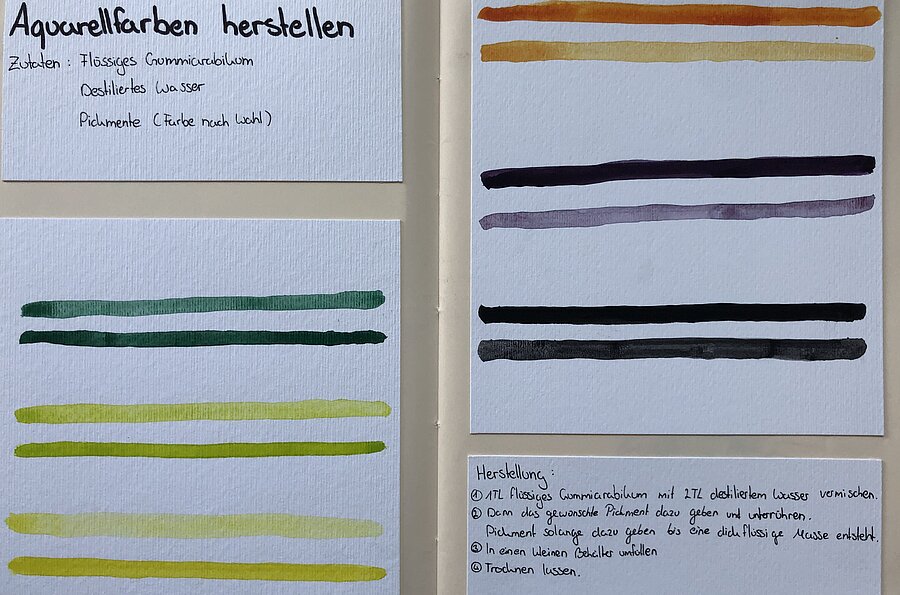 Aquarellfarben herstellen
Zutaten : Flüssiges Gummiarabikum
Destiliertes Wasser
Pichmente (Farbe nach Wahl)
Herstellung :
① 1TL flüssiges Gummiarabikum mit 2TL destiliertem Wasser vermischen.
② Dann das gewünschte Pichment dazu geben und unterrühren.
Pichment solange dazu geben bis eine dickflüssige Masse entsteht.
③ In einen kleinen Behälter umfüllen
④ Trocknen lassen.